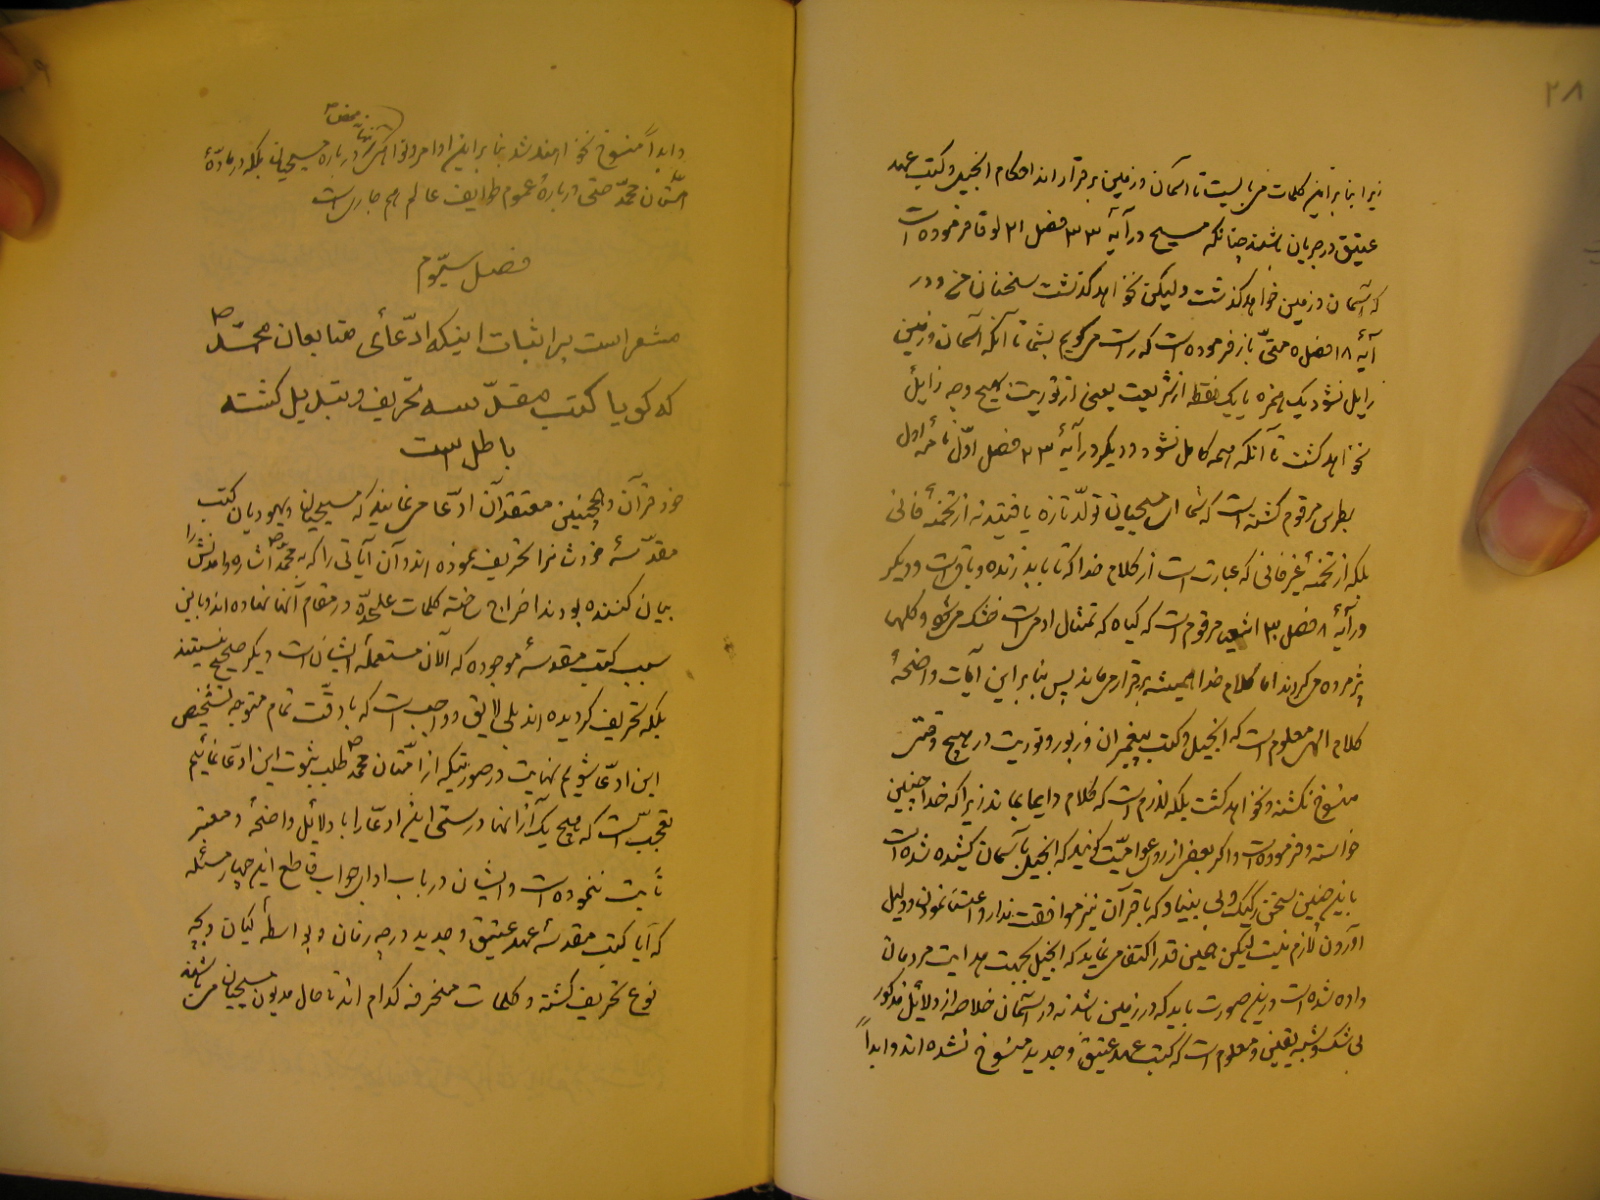 ۲۸
زیرا بنا براین کلمات می بایست تا آسمان و زمین برقرار اند احکام انجیل و کتب عهد
عتیق در جریان باشند چنانکه مسیح در آیه ۳۳ فصل ۲۱ لوقا فرموده است
که آسمان و زمین خواهد گذشت و لیکن نخواهد گذشت سخنان من و در
آیهٔ ۱۸ فصل ۵ متی باز فرموده است که راست میگویم بشما تا آنکه آسمان و زمین
زایل نشود یک همزه یا یک نقطه از شریعت یعنی از توریت بهیچ وجه زایل
نخواهد گشت تا آنکه همه کامل نشود و دیگر در آیهٔ ۲۳ فصل اوّل نامهٔ اول
بطرس مرقوم گشته است که شما ای مسیحیان تولّد تازه یافتید نه از تخمهٔ فانی
بلکه از تخمهٔ غیر فانی که عبارت است از کلام خدا که تا بابد زنده و باقی است و دیگر
در آیهٔ ۸ فصل ۴۰ اشعیا مرقوم است که گیاه که تمثال آدمی است خشک میشود و گلها
پژمرده میگردند اما کلام خدا همیشه برقرار میماند پس بنا براین آیات واضحهٔ
کلام الهی معلوم است که انجیل و کتب پیغمبران و زبور و توریت در هیچ وقتی
منسوخ نگشته و نخواهد گشت بلکه لازم است که کلام دایما بماند زیرا که خدا چنین
خواسته و فرموده است و اگر بعضی از روی عوامیّت گویند که انجیل بآسمان کشیده شده است
باین چنین سخن رکیک و بی بنیاد که با قرآن نیز موافقت ندارد اعتنا نمودن و دلیل
آوردن لازم نیست لیکن همین قدر اکتفا مینماید که انجیل بجهت هدایت مردمان
داده شده است در این صورت باید که در زمین باشد نه در آسمان خلاصه از دلائل مذکور
بی شک و شبه یقین و معلوم است که کتب عهد عتیق و جدید منسوخ نشده اند و ابداً
و ابداً منسوخ نخواهند شد بنا براین اوامر و نواهی نه تنها درباره مسیحیان بلکه در مادّهٔ
امّتان محمّد حتی دربارهٔ عموم طوایف عالم هم جاری است
فصل سیّوم
مشعر است بر اثبات اینکه ادّعأی متابعان محمّد ص
که گویا کتب مقدّسه تحریف و تبدیل گشته
باطل است
خود قرآن و همچنین معتقد آن ادّعا مینمایند که مسیحیان و یهودیان کتب
مقدّسهٔ خودشانرا تحریف نموده اند و آن آیاتی را که به محمّد ص اشاره و آمدنش را
بیان کننده بودند اخراج ساخته کلمات علیحدّه در مقام آنها نهاده اند و باین
سبب کتب مقدسهٔ موجوده که الآن مستعملهٔ ایشان است دیگر صحیح نیستند
بلکه تحریف گردیده اند بلی لایق و واجب است که با دقّت تمام متوجه تشخیص
این ادّعا شویم نهایت در صورتیکه از امّتان محمد ص طلب ثبوت این ادعا نمائیم
تعجّب است که هیچ یک از آنها درستی این ادعّا را با دلائل واضحه و معتبر
ثابت ننموده است و ایشان در باب ادای جواب قاطع این چهار مسئله
که آیا کتب مقدسهٔ عهد عتیق و جدید در چه زمان و بواسطهٔ کیان و بچه
نوع تحریف گشته و کلمات منحرفه کدام اند تا حال مدیون مسیحیان می باشند